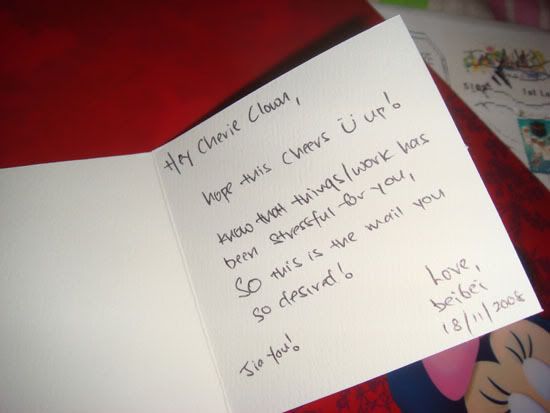 Hey Cherie Clown,
hope this cheers Ü up!
know that things/work has
been stressful for you,
So this is the mail you
so desired!
Jia You!
Love,
beibei
18/11/2008
1st